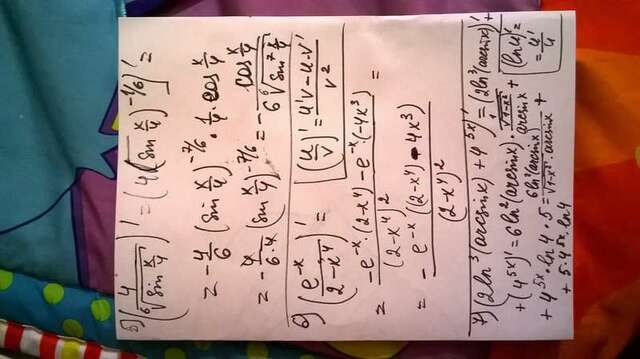 5) (4/⁶√(sin x/4))' = (4(sin x/4)^(-1/6))' =
= -4/6 (sin x/4)^(-7/6) · 1/4 · cos x/4
= -4/(6·4) (sin x/4)^(-7/6) = -cos x/4 / (6 ⁶√(sin⁷ x/4))
6) (e^(-x)/(2-x⁴))' = (u/v)' = (u'v-u·v')/v²
= (-e^(-x)·(2-x⁴)-e^(-x)·(-4x³))/(2-x⁴)² =
= -e^(-x)((2-x⁴)-4x³)/(2-x⁴)²
7) (2ln³(arcsinx)+4^(5x))' = (2ln³(arcsinx))' +
+ (4^(5x))' = 6ln²(arcsinx) · (1/√(1-x²))/arcsinx +
(ln u)' = u'/u
+ 4^(5x)·ln4·5 = 6ln²(arcsinx)/(√(1-x²)·arcsinx) +
+ 5·4^(5x)·ln4